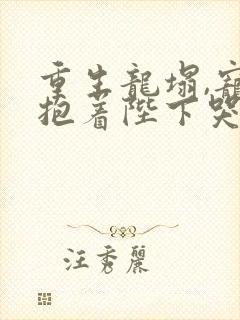 重生龍塌,寵
抱着陛下哭
汪秀麗